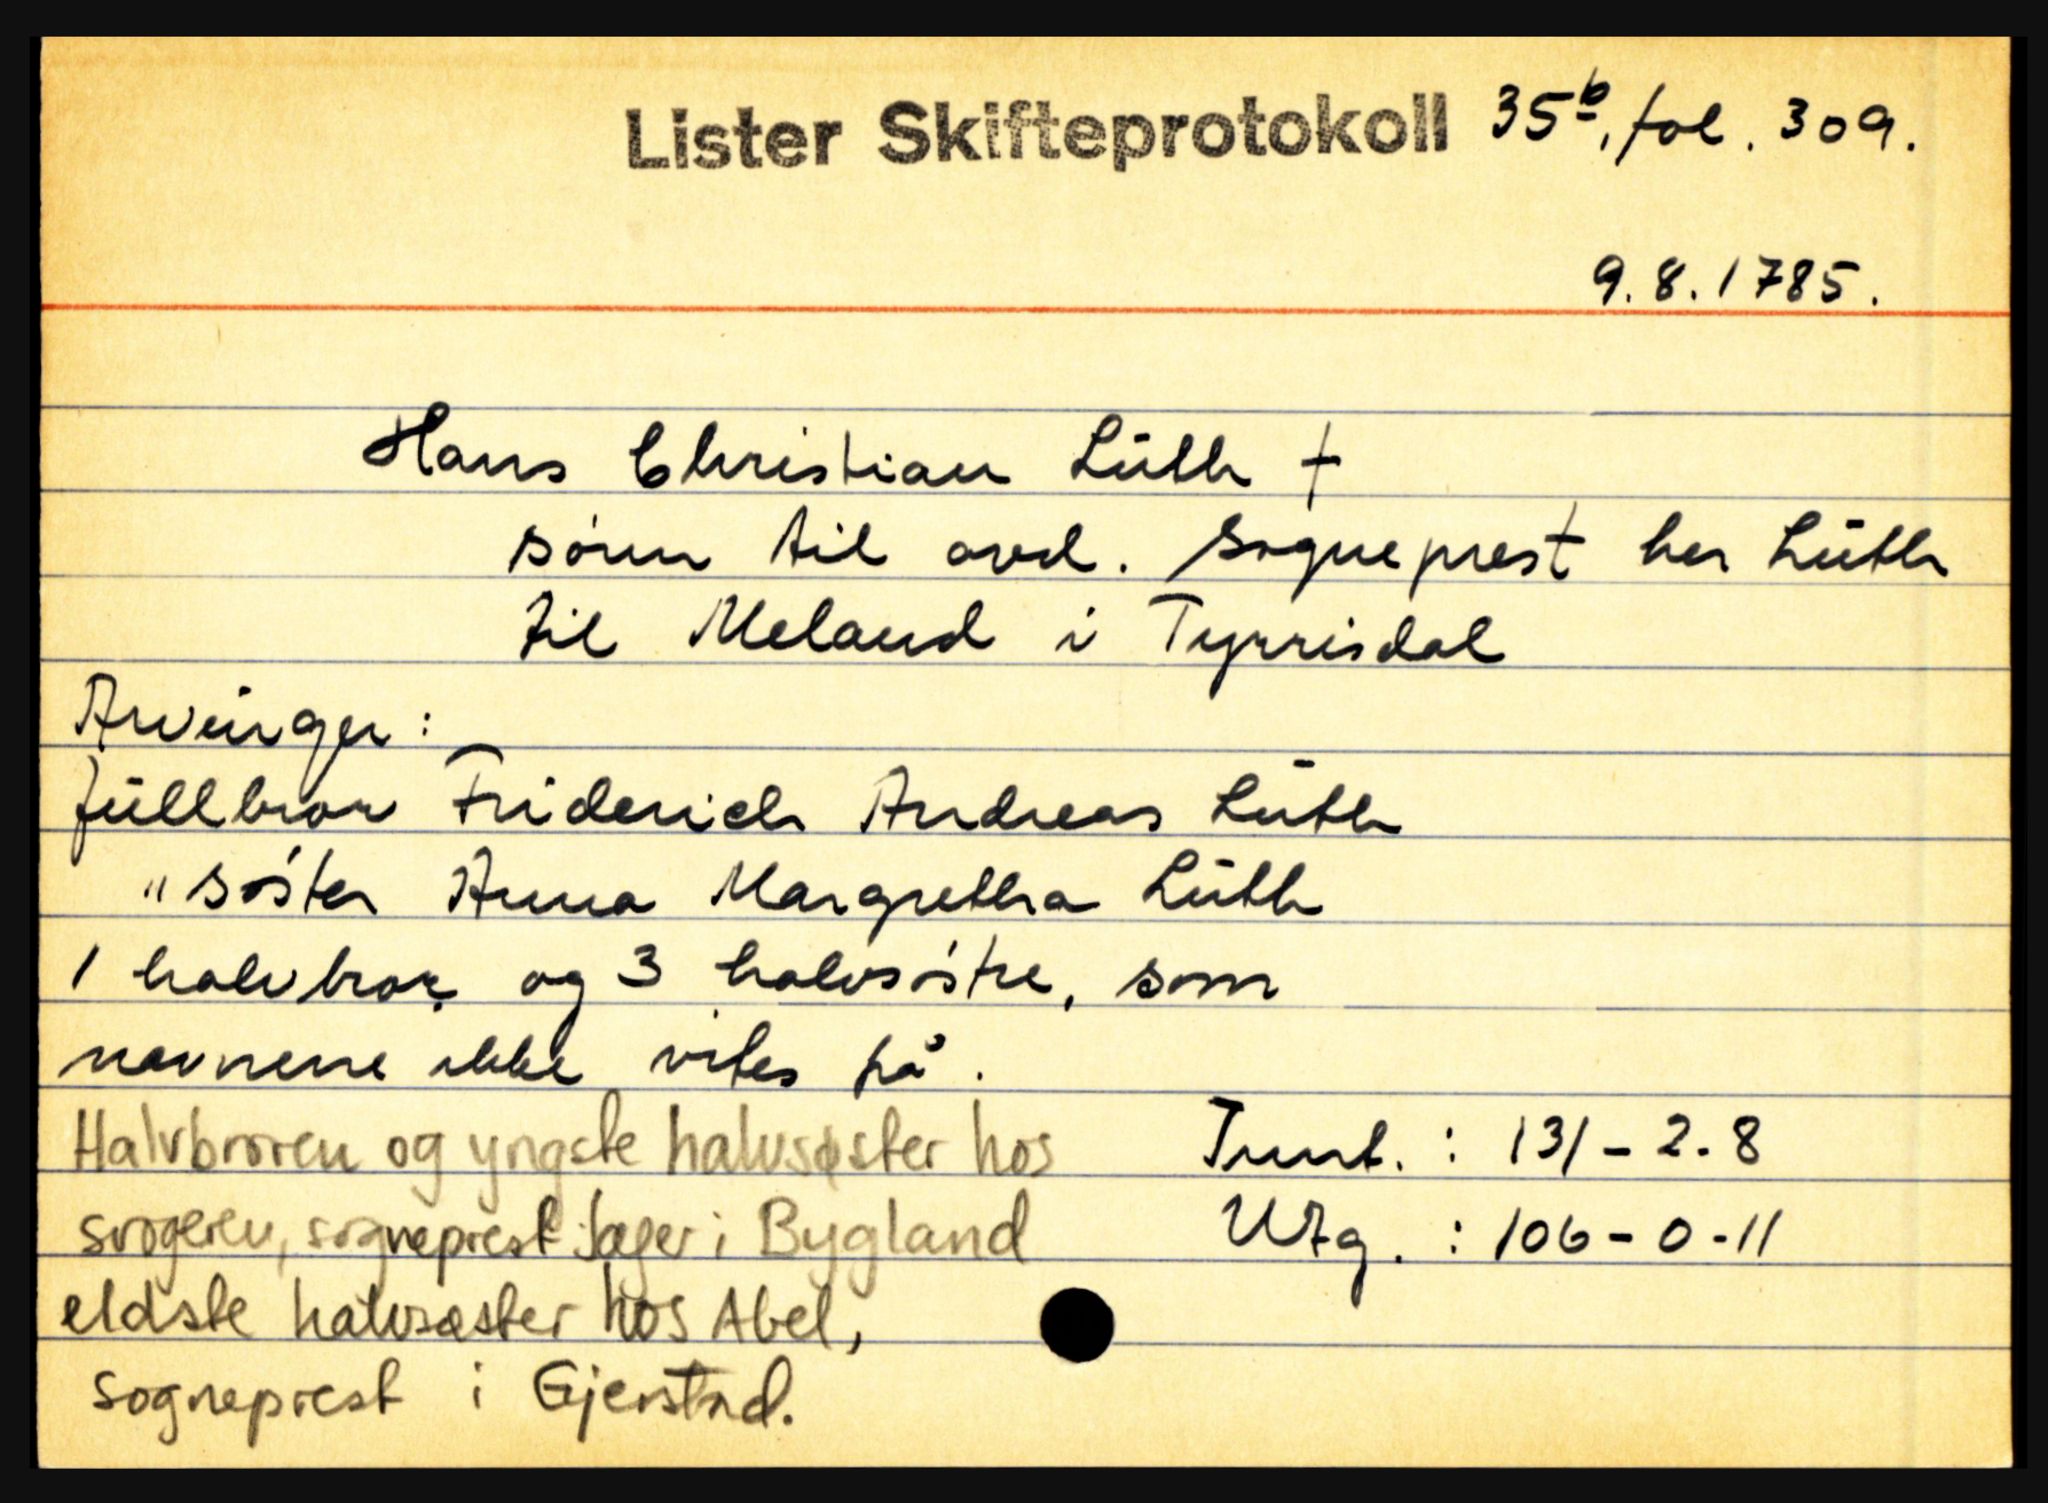 Lister Skifteprotokoll 35b, fol. 309.
9.8.1785.
Hans Christian Lüth †
sönn til avd. sogneprest her Lüth
til Meland i Tyrrisdal
Arvinger:
füllbror Friderich Andreas Lüth
" söster Anna Margretha Lüth
1 halvbror og 3 halvsöstre, som
navnene ikke vites på.
Halvbroren og yngste halvsøster hos
svogeren, sogneprest Jæger i Bygland
eldste halvsøster hos Abel,
sogneprest i Gjerstad.
Innt. : 131-2-8
Utg. : 106-0-11